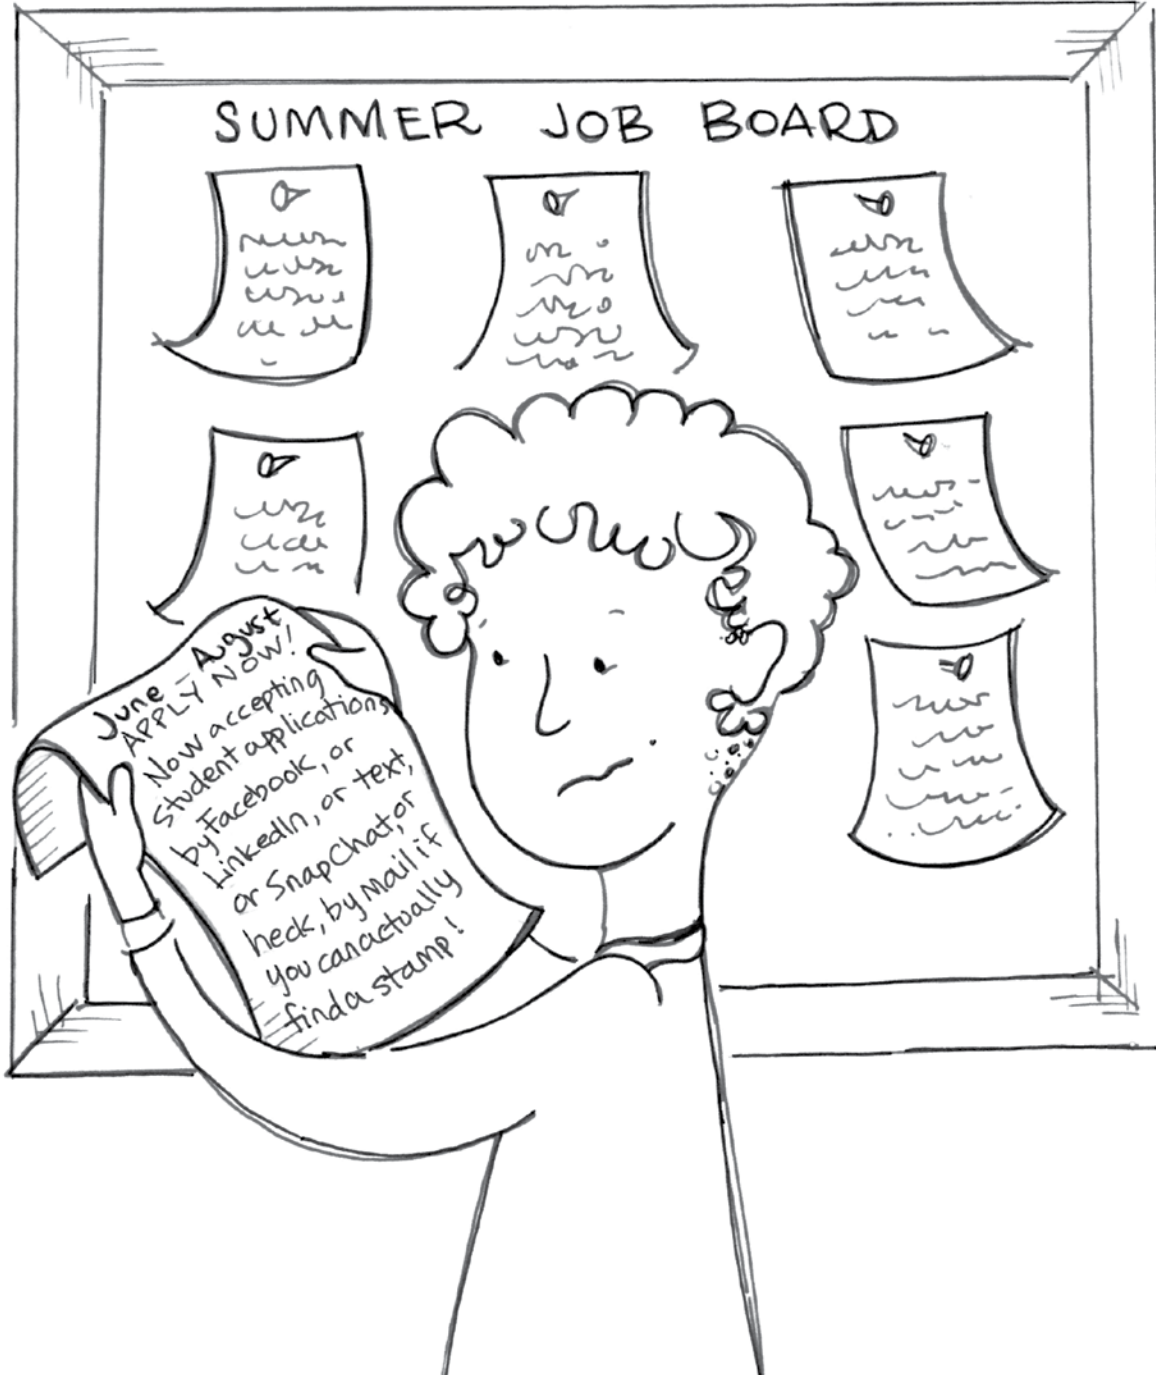 SUMMER JOB BOARD
June - August
APPLY NOW!
Now accepting
student applications
by Facebook, or
LinkedIn, or text,
or SnapChat, or
heck, by mail if
you can actually
find a stamp!